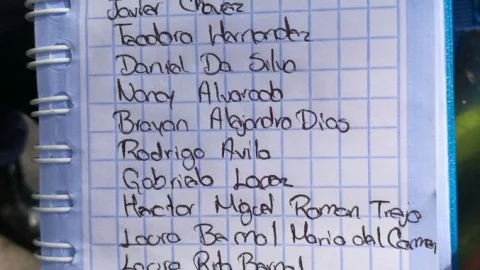 Javier Chavez
Teodoro Hernandez
Daniel Da Silva
Nancy Alvarado
Brayan Alejandro Dias
Rodrigo Avila
Gabriela Lopez
Hector Migel Roman Trejo
Laura Bernal Maria del Carmen
Laura Rita Bernal